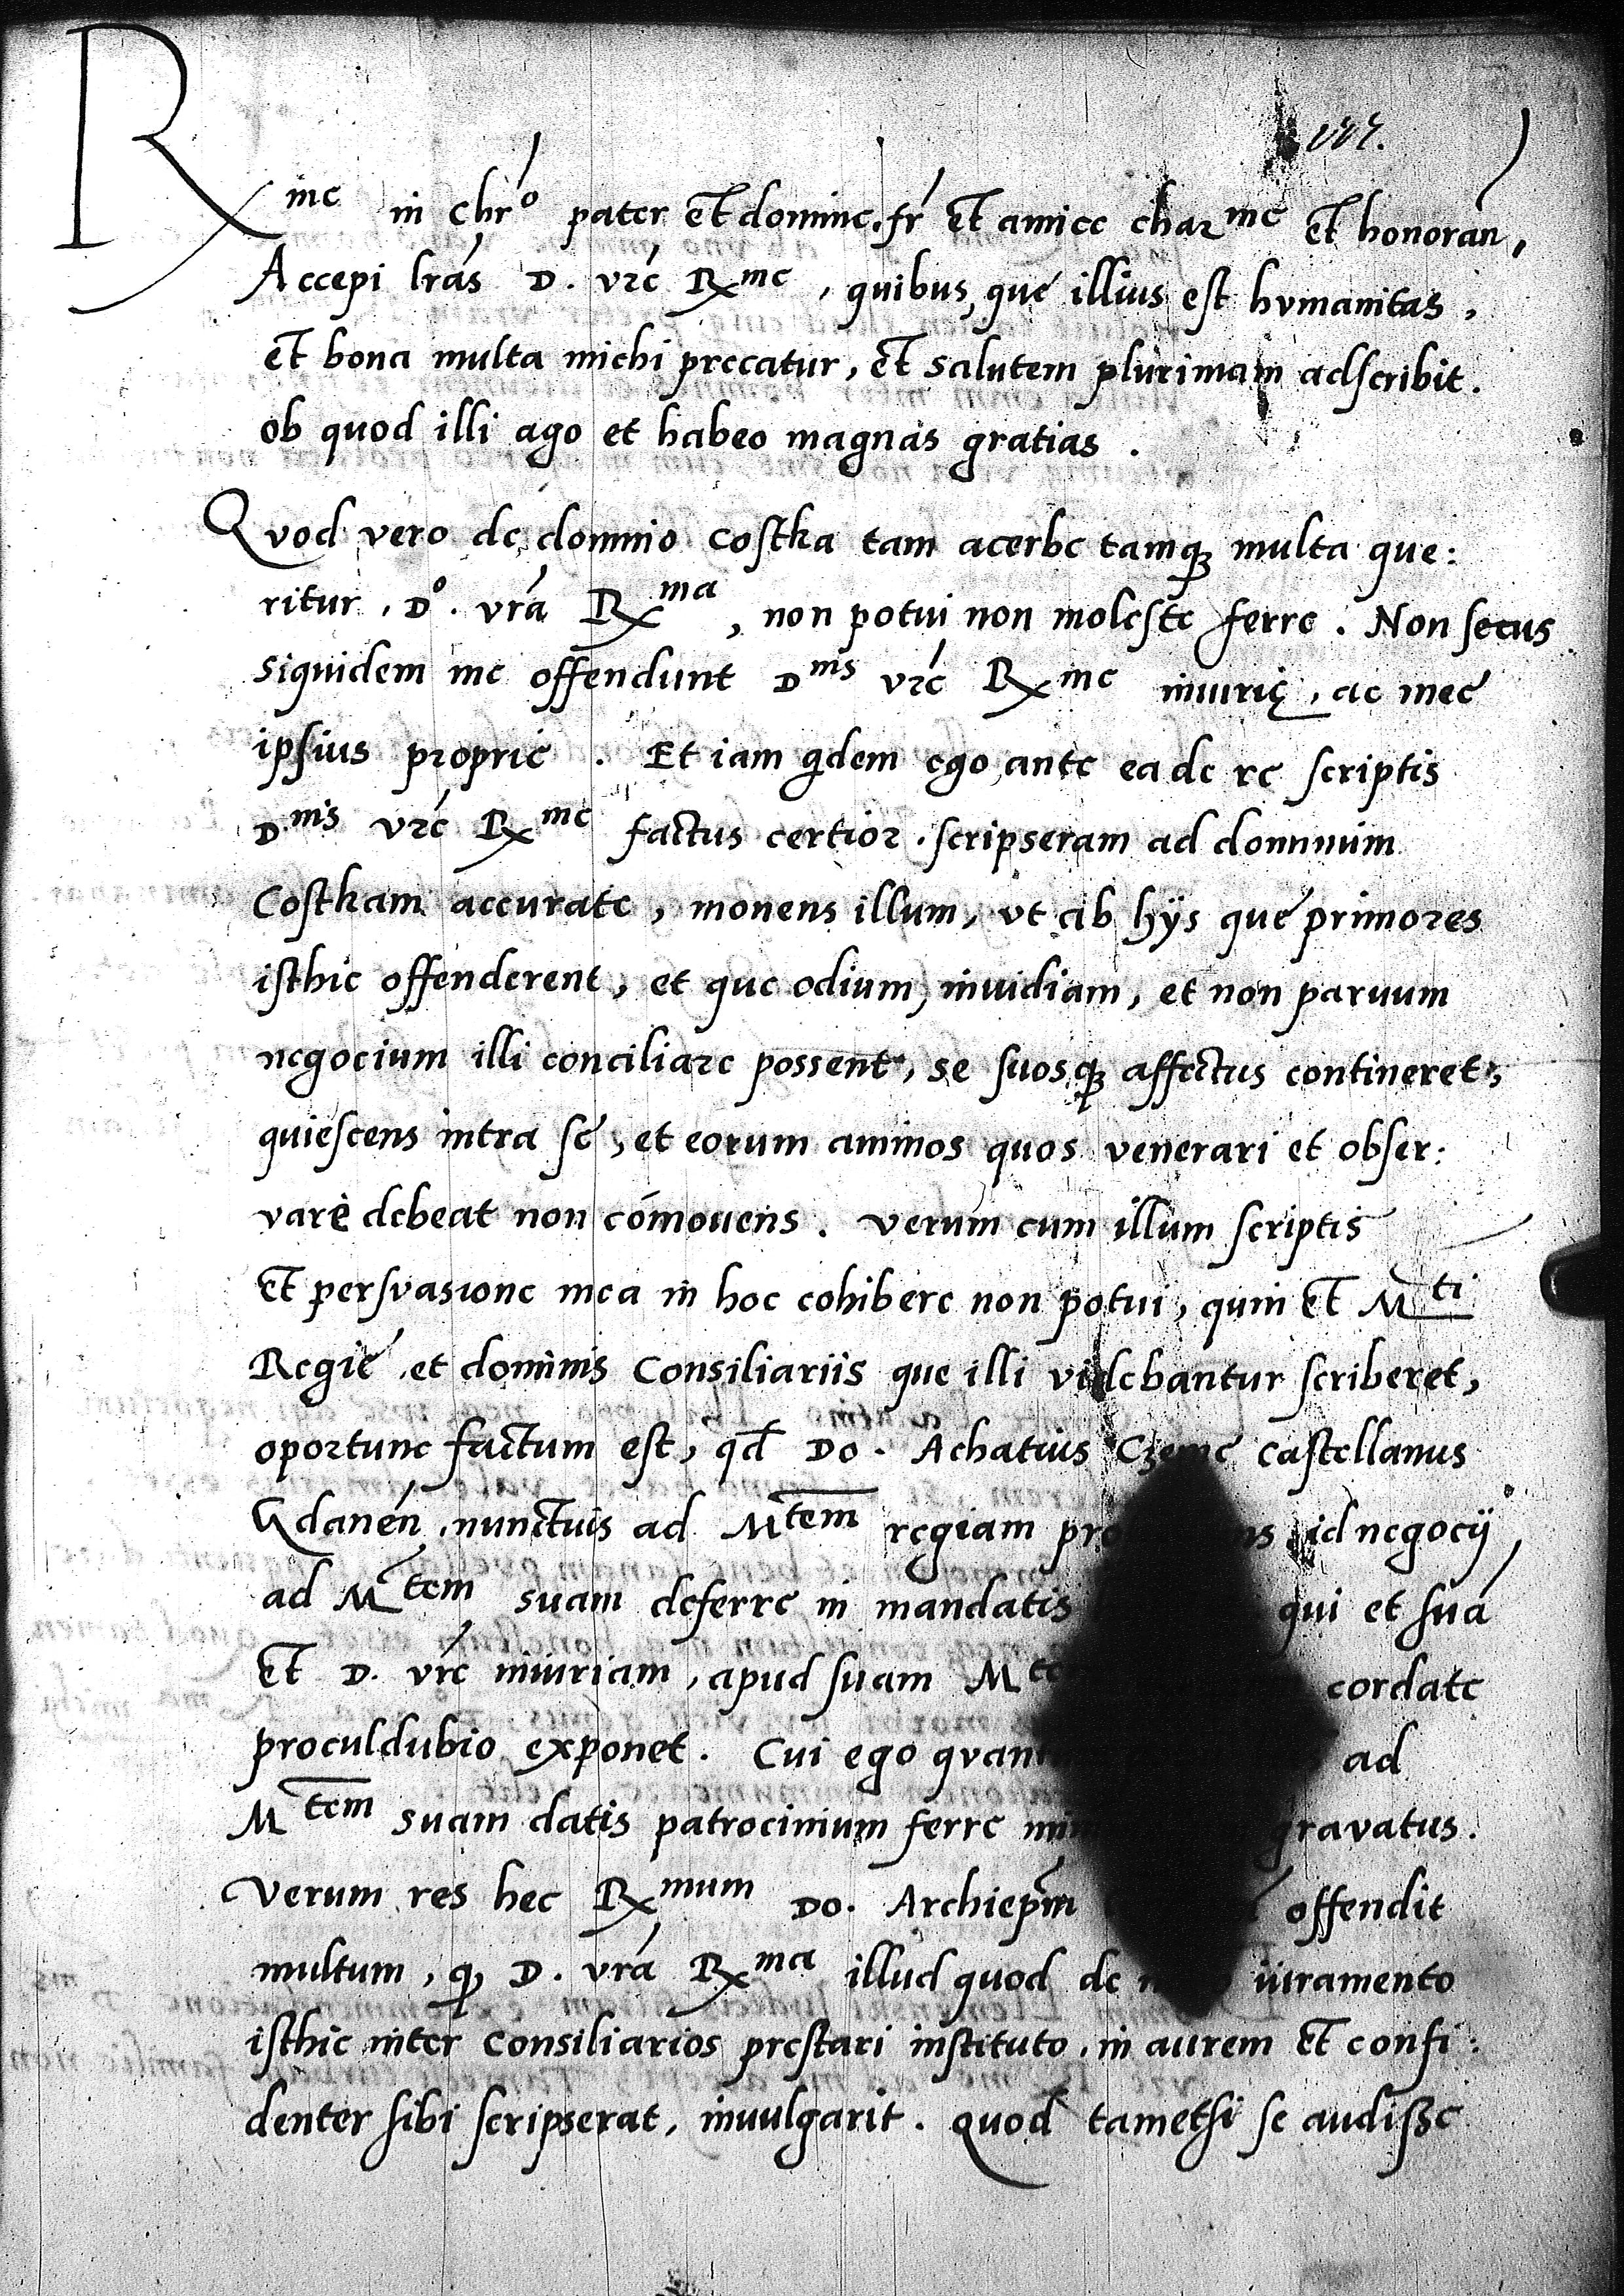 Rme in chro pater et domine. fr et amice charme et honoran,
Accepi lras D. vre Rxme, quibus, que illius est hvmanitas,
et bona multa michi precatur, et salutem plurimam adscribit.
ob quod illi ago et habeo magnas gratias.
Qvod vero de domino Costka tam acerbe tamq; multa que:
ritur, Do. vra Rxma, non potui non moleste ferre. Non secus
siquidem me offendunt Dnis vre Rxme iniurię, ac meę
ipsius proprie. Et iam qdem ego, ante ea de re scriptis
D.nis vre Rxme factus certior. scripseram ad dominum
Costkam accurate, monens illum, vt ab hÿs que primores
isthic offenderent, et que odium, inuidiam, et non paruum
negocium illi conciliare possent, se suosq; affectus contineret,
quiescens intra se, et eorum animos quos venerari et obser:
vare debeat non comouens. verum cum illum scriptis
et persvasione mea in hoc cohibere non potui, quin et Mti
Regie et dominis Consiliariis que illi videbantur scriberet,
oportune factum est, qd Do. Achatius Czeme castellanus
Gdanen, nunctius ad Mtem regiam id negocÿ
ad Mtem suam deferre in mandatis qui et sua
et D. vre iniuriam, apud suam cordate
proculdubio exponet. Cui ego ad
Mtem suam datis patrocinium ferre gravatus.
Verum res hec Rxmum Do. Archiepm offendit
multum, q, D. vra Rxma illud quod de iuramento
isthic inter Consiliarios prestari instituto, in aurem et confi:
denter sibi scripserat, inuulgarit. Quod tametsi se audisse